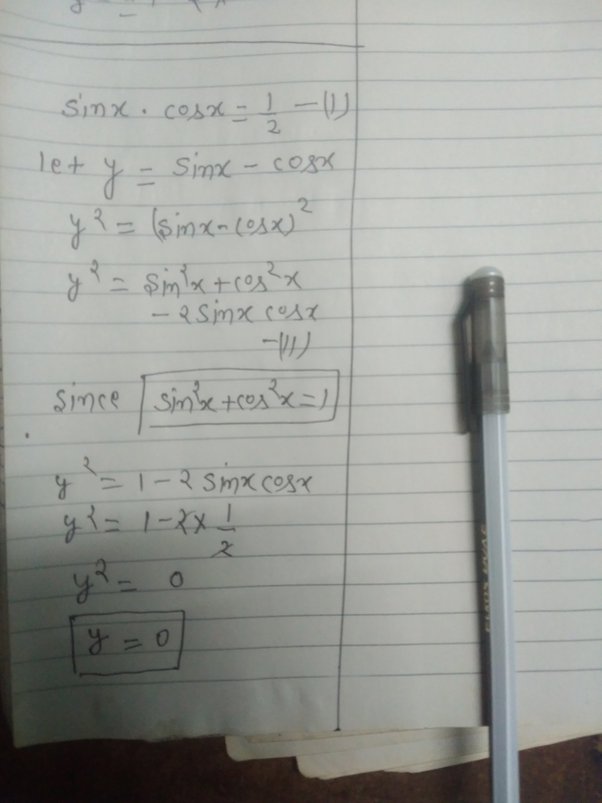 sinx . cosx = 1/2 - (1)
let y = sinx - cosx
y² = (sinx - cosx)²
y² = sin²x + cos²x
- 2 sinx cosx
- (11)
since sin²x + cos²x = 1
y² = 1 - 2 sinx cosx
y² = 1 - 2 x 1/2
y² = 0
y = 0